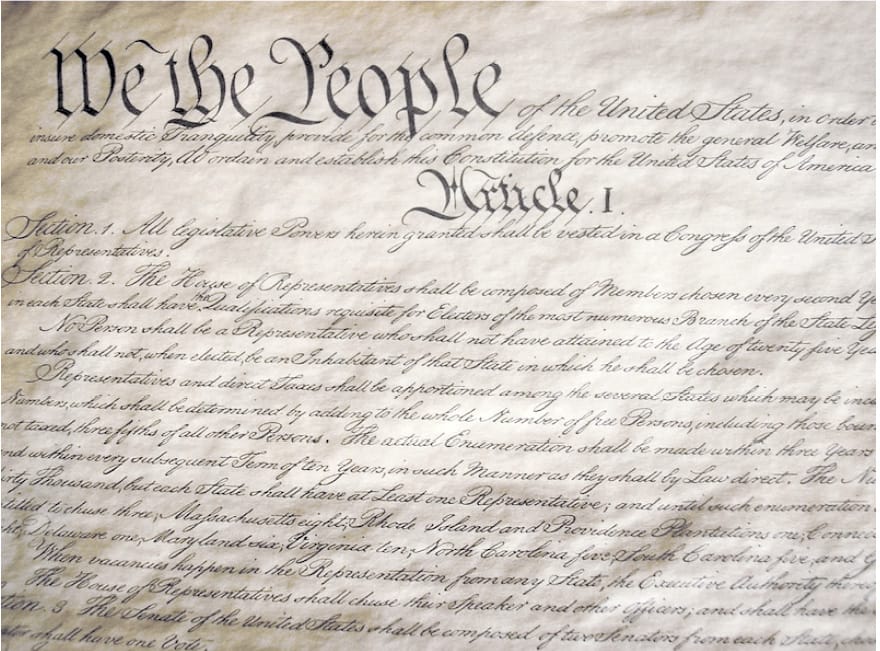 We the People of the United States, in order
insure domestic Tranquility, provide for the common defence, promote the general Welfare, and
and our Posterity, do ordain and establish this Constitution for the United States of America
Article. I.
Section. 1. All legislative Powers herein granted shall be vested in a Congress of the United
of Representatives.
Section. 2. The House of Representatives shall be composed of Members chosen every second
in each State shall have the Qualifications requisite for Electors of the most numerous Branch of the State
No Person shall be a Representative who shall not have attained to the Age of twenty five
and who shall not, when elected, be an Inhabitant of that State in which he shall be chosen.
Representatives and direct Taxes shall be apportioned among the several States which may be
Numbers, which shall be determined by adding to the whole Number of free Persons, including those
not taxed, three fifths of all other Persons. The actual Enumeration shall be made within three Years
within every subsequent Term of ten Years, in such Manner as they shall by Law direct. The
Thousand, but each State shall have at Least one Representative; and until such enumeration
to chuse three, Massachusetts eight, Rhode Island and Providence Plantations one,
Delaware one, Maryland six, Virginia ten, North Carolina five, South Carolina five, and
When vacancies happen in the Representation from any State, the Executive Authority
The House of Representatives shall chuse their Speaker and other Officers; and shall have the
3 The Senate of the United States shall be composed of two Senators from each State,
shall have one Vote.